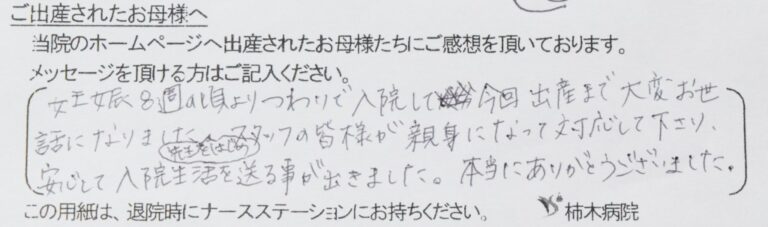 ご出産されたお母様へ
当院のホームページへ出産されたお母様たちにご感想を頂いております。
メッセージを頂ける方はご記入ください。
妊娠8週の頃よりつわりで入院して今回出産まで大変お世
話になりました。先生をはじめスタッフの皆様が親身になって対応して下さり、
安心して入院生活を送る事が出きました。本当にありがとうございました。
この用紙は、退院時にナースステーションにお持ちください。 柿木病院